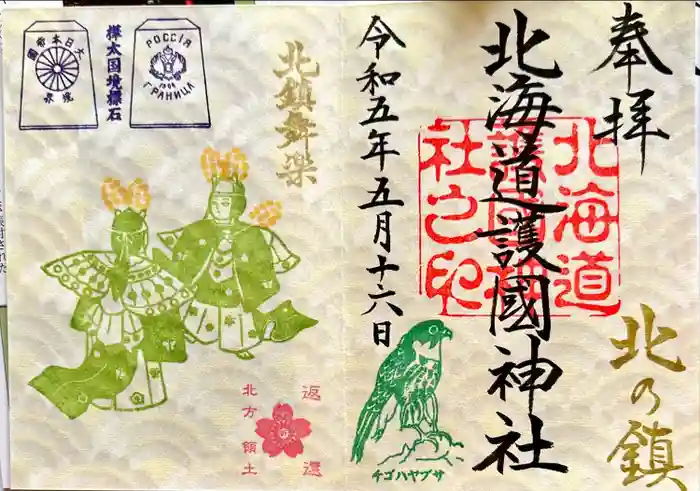 奉拝
北海道護國神社
北海道
護國神
社之印
北の鎮
令和五年五月十六日
チゴハヤブサ
北鎮舞楽
樺太国境標石
大日本帝国
境界
РОССІЯ
1906
ГРАНИЦА
返還
北方領土